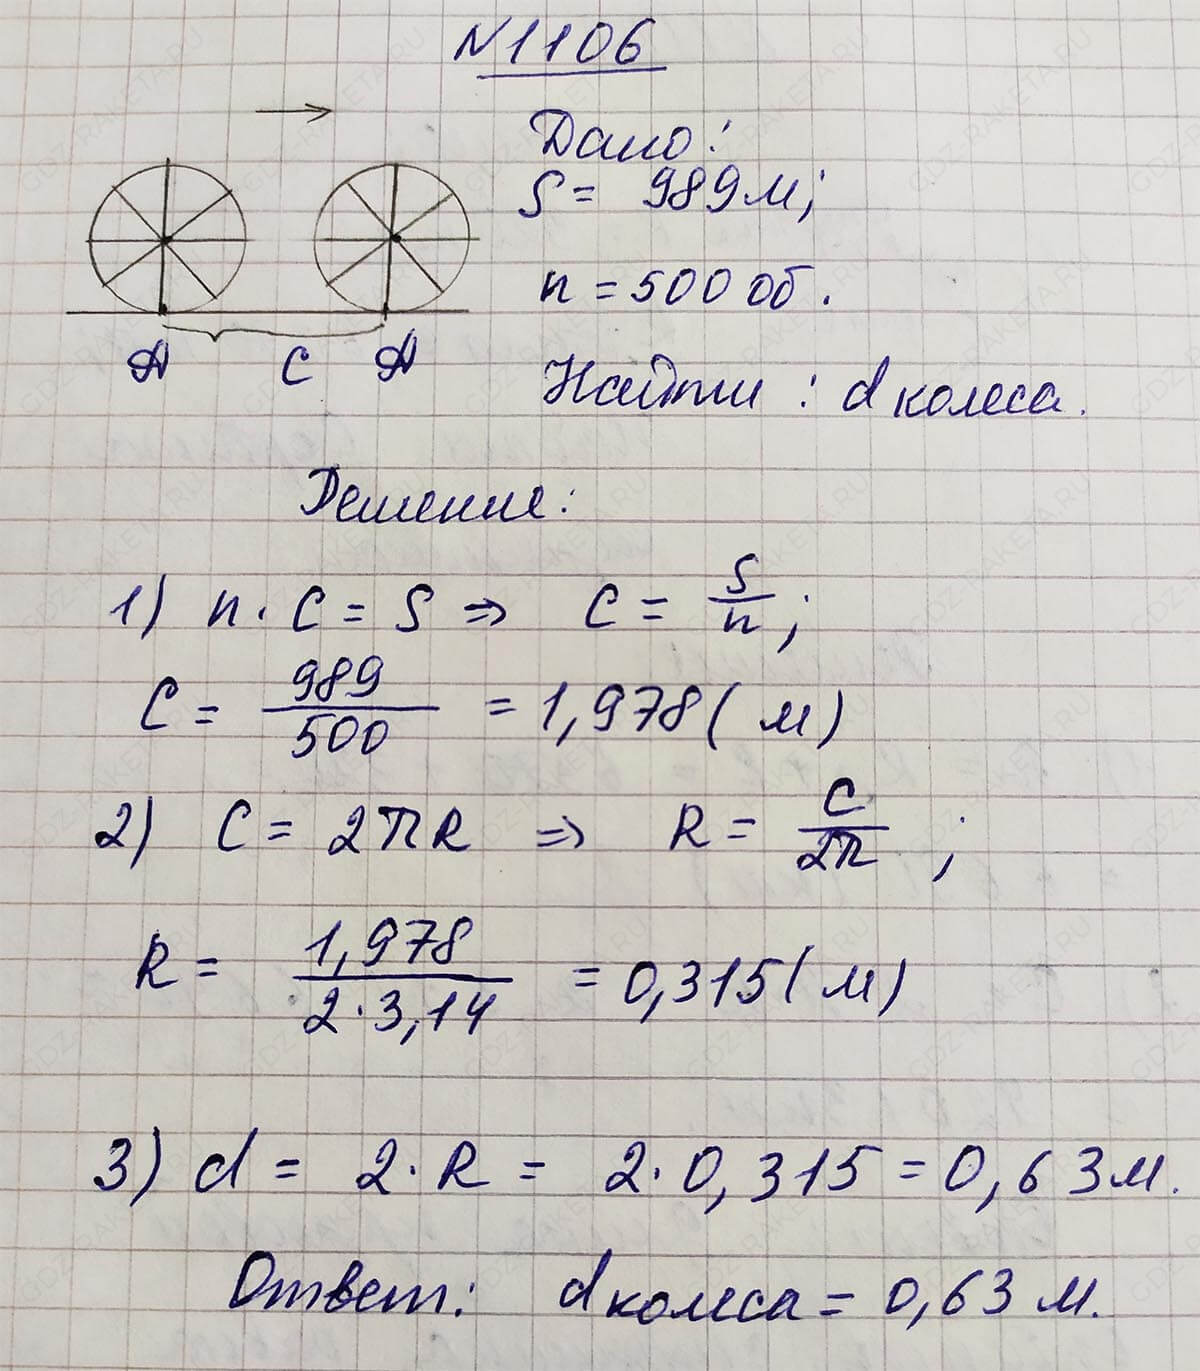 N1106
Дано:
S = 989 м;
n = 500 об.
A C A
Найти: d колеса.
Решение:
1) n · C = S ⇒ C = S/n;
C = 989/500 = 1,978 (м)
2) C = 2πR ⇒ R = C/2π;
R = 1,978/2·3,14 = 0,315 (м)
3) d = 2 · R = 2 · 0,315 = 0,63 м.
Ответ: d колеса = 0,63 м.
GDZ-RAKETA.RU